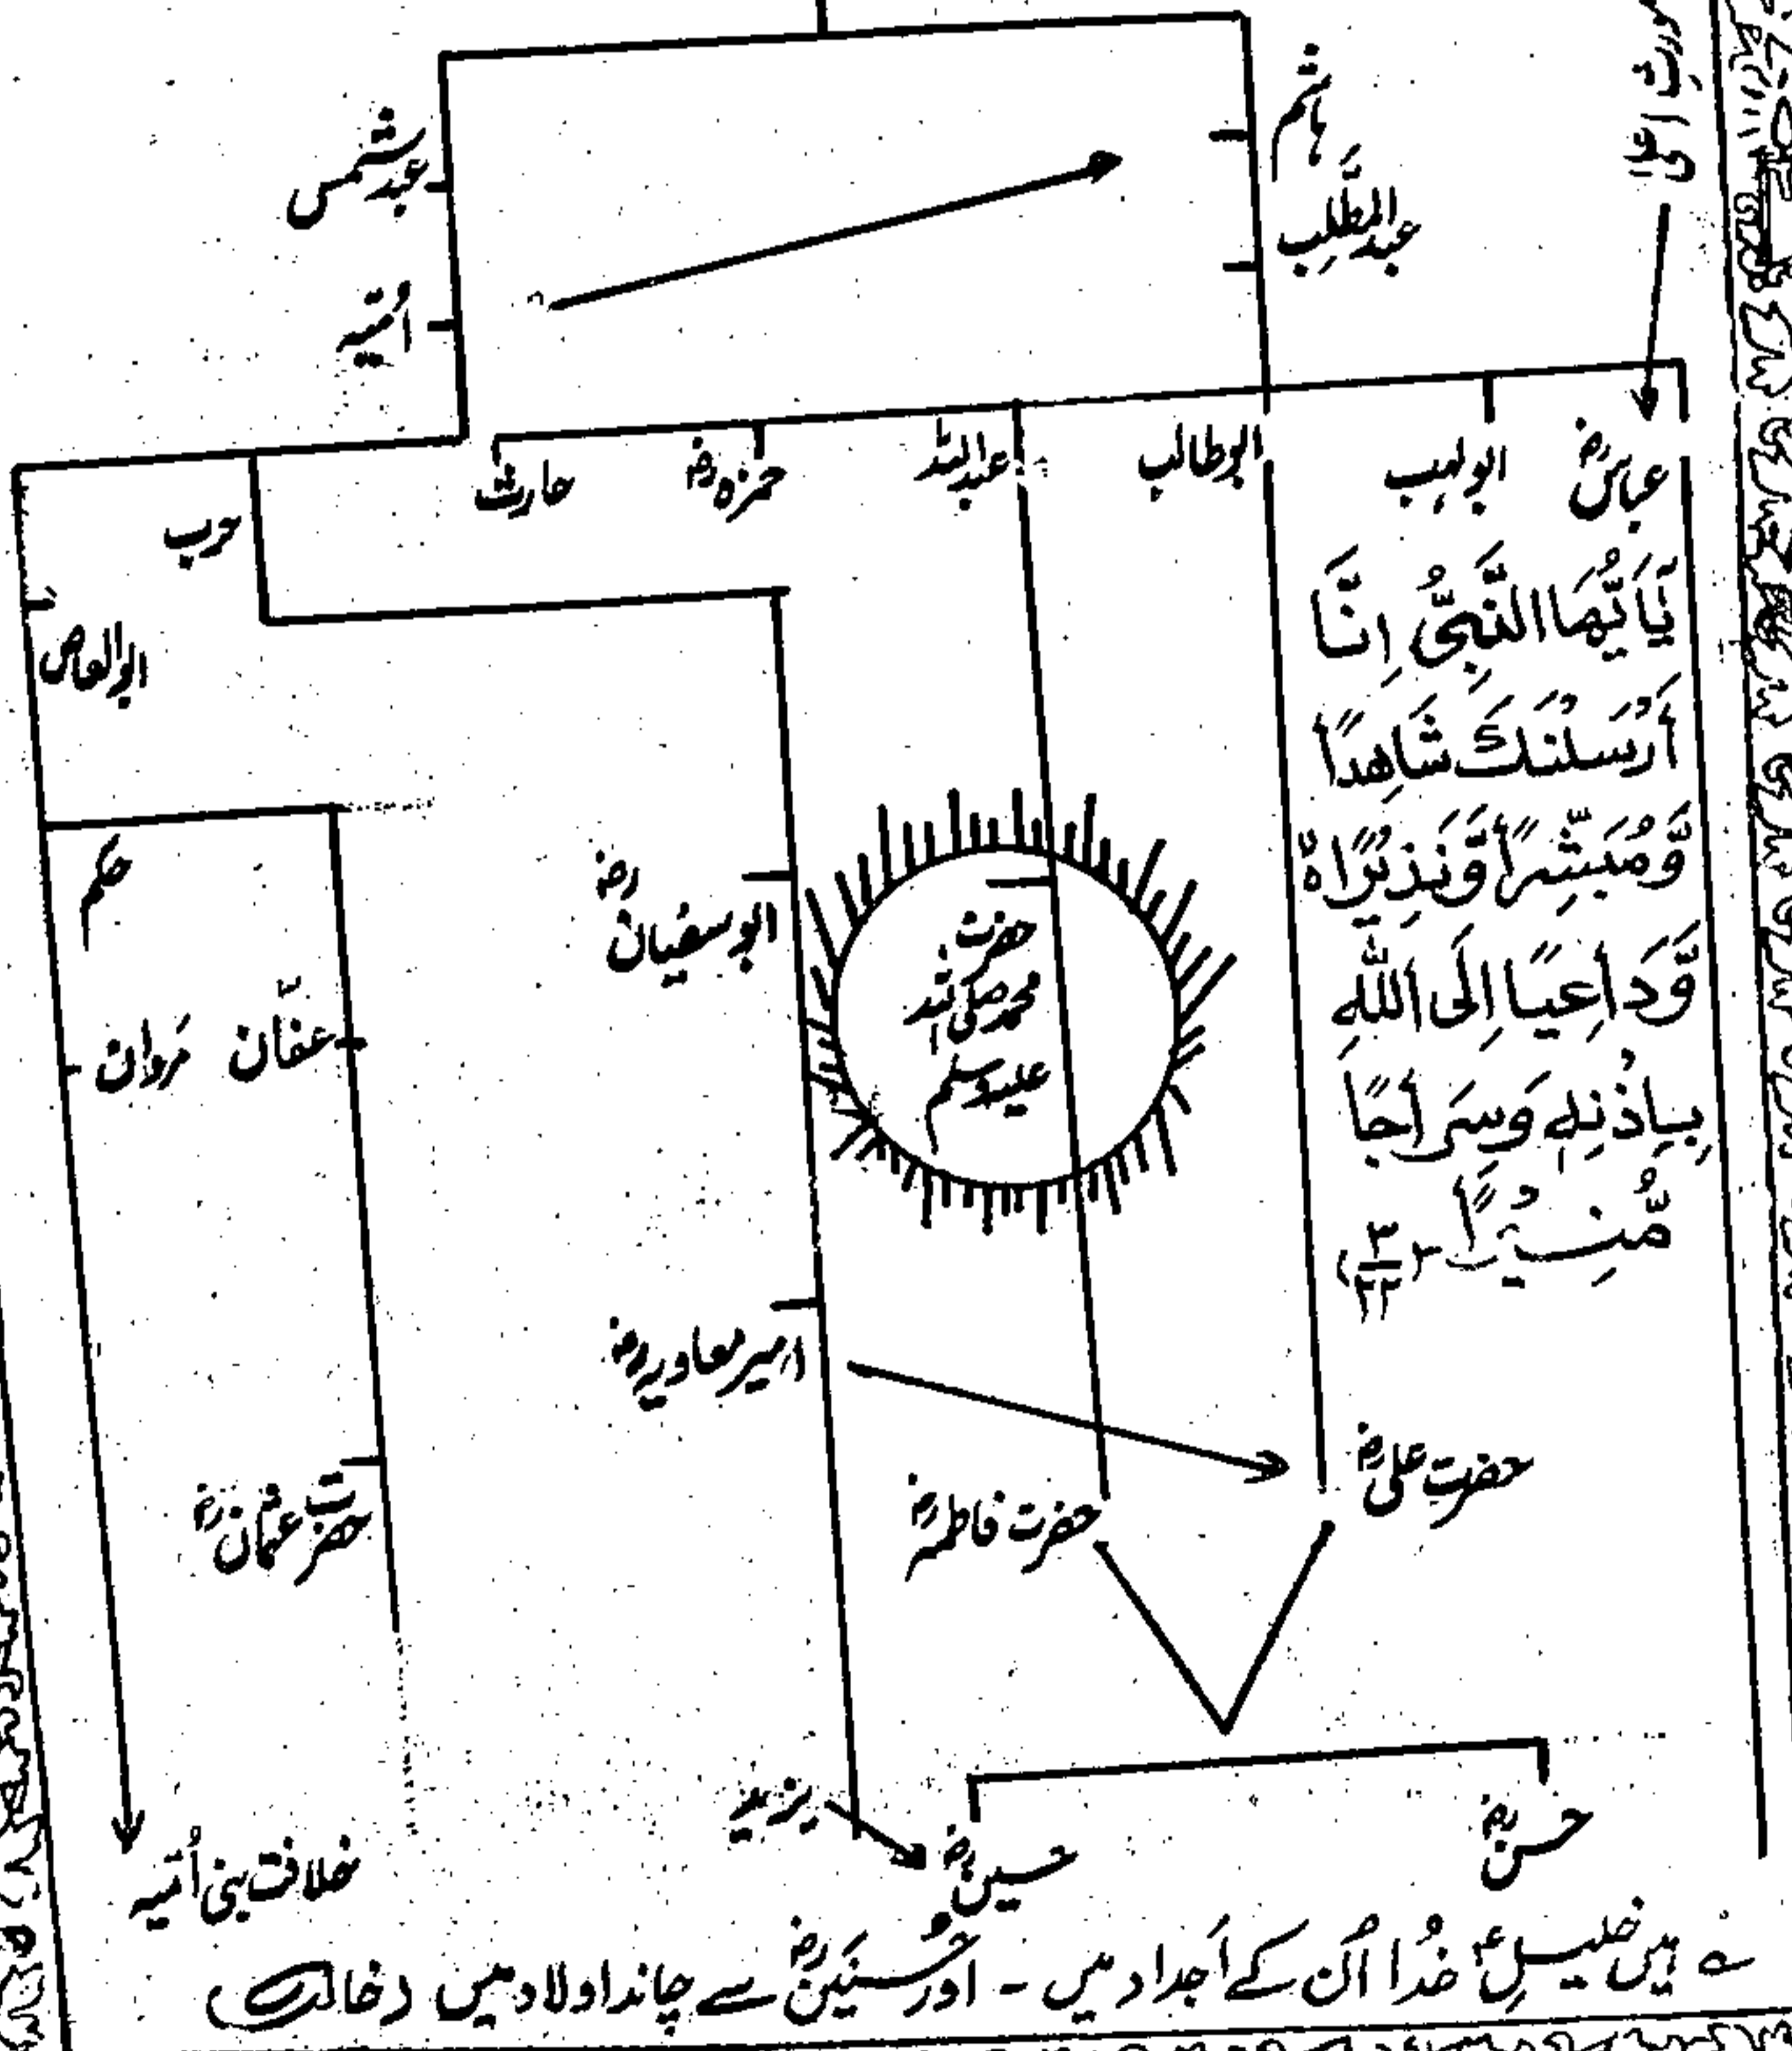 ہاشم
عبدالمطّلِب
عبدشمس
اُمیّہ
عباسؓ
ابولہب
ابوطالب
عبداللہ
حمزہؓ
حارث
حرب
ابوالعاص
یٰۤاَیُّهَا النَّبِیُّ اِنَّاۤ
اَرْسَلْنٰكَ شَاهِدًا
وَّمُبَشِّرًا وَّنَذِیْرًاۙ
وَّدَاعِیًا اِلَی اللّٰهِ
بِاِذْنِهٖ وَسِرَاجًا
مُّنِیْرًا (۳/۲۲)
حکم
ابوسفیانؓ
حضرت
محمد صلی اللہ
علیہ وسلم
عفّان
مَروان
امیر معاویہؓ
حضرت علیؓ
حضرت فاطمہؓ
حضرت عثمانؓ
یزید
حسینؓ
حسنؓ
خلافت بنی اُمیہ
ے ہیں خلیلِؑ خُدا اُن کے اَجداد میں ۔ اور حُسَنَینؓ سے چاند اولاد میں (خالد)